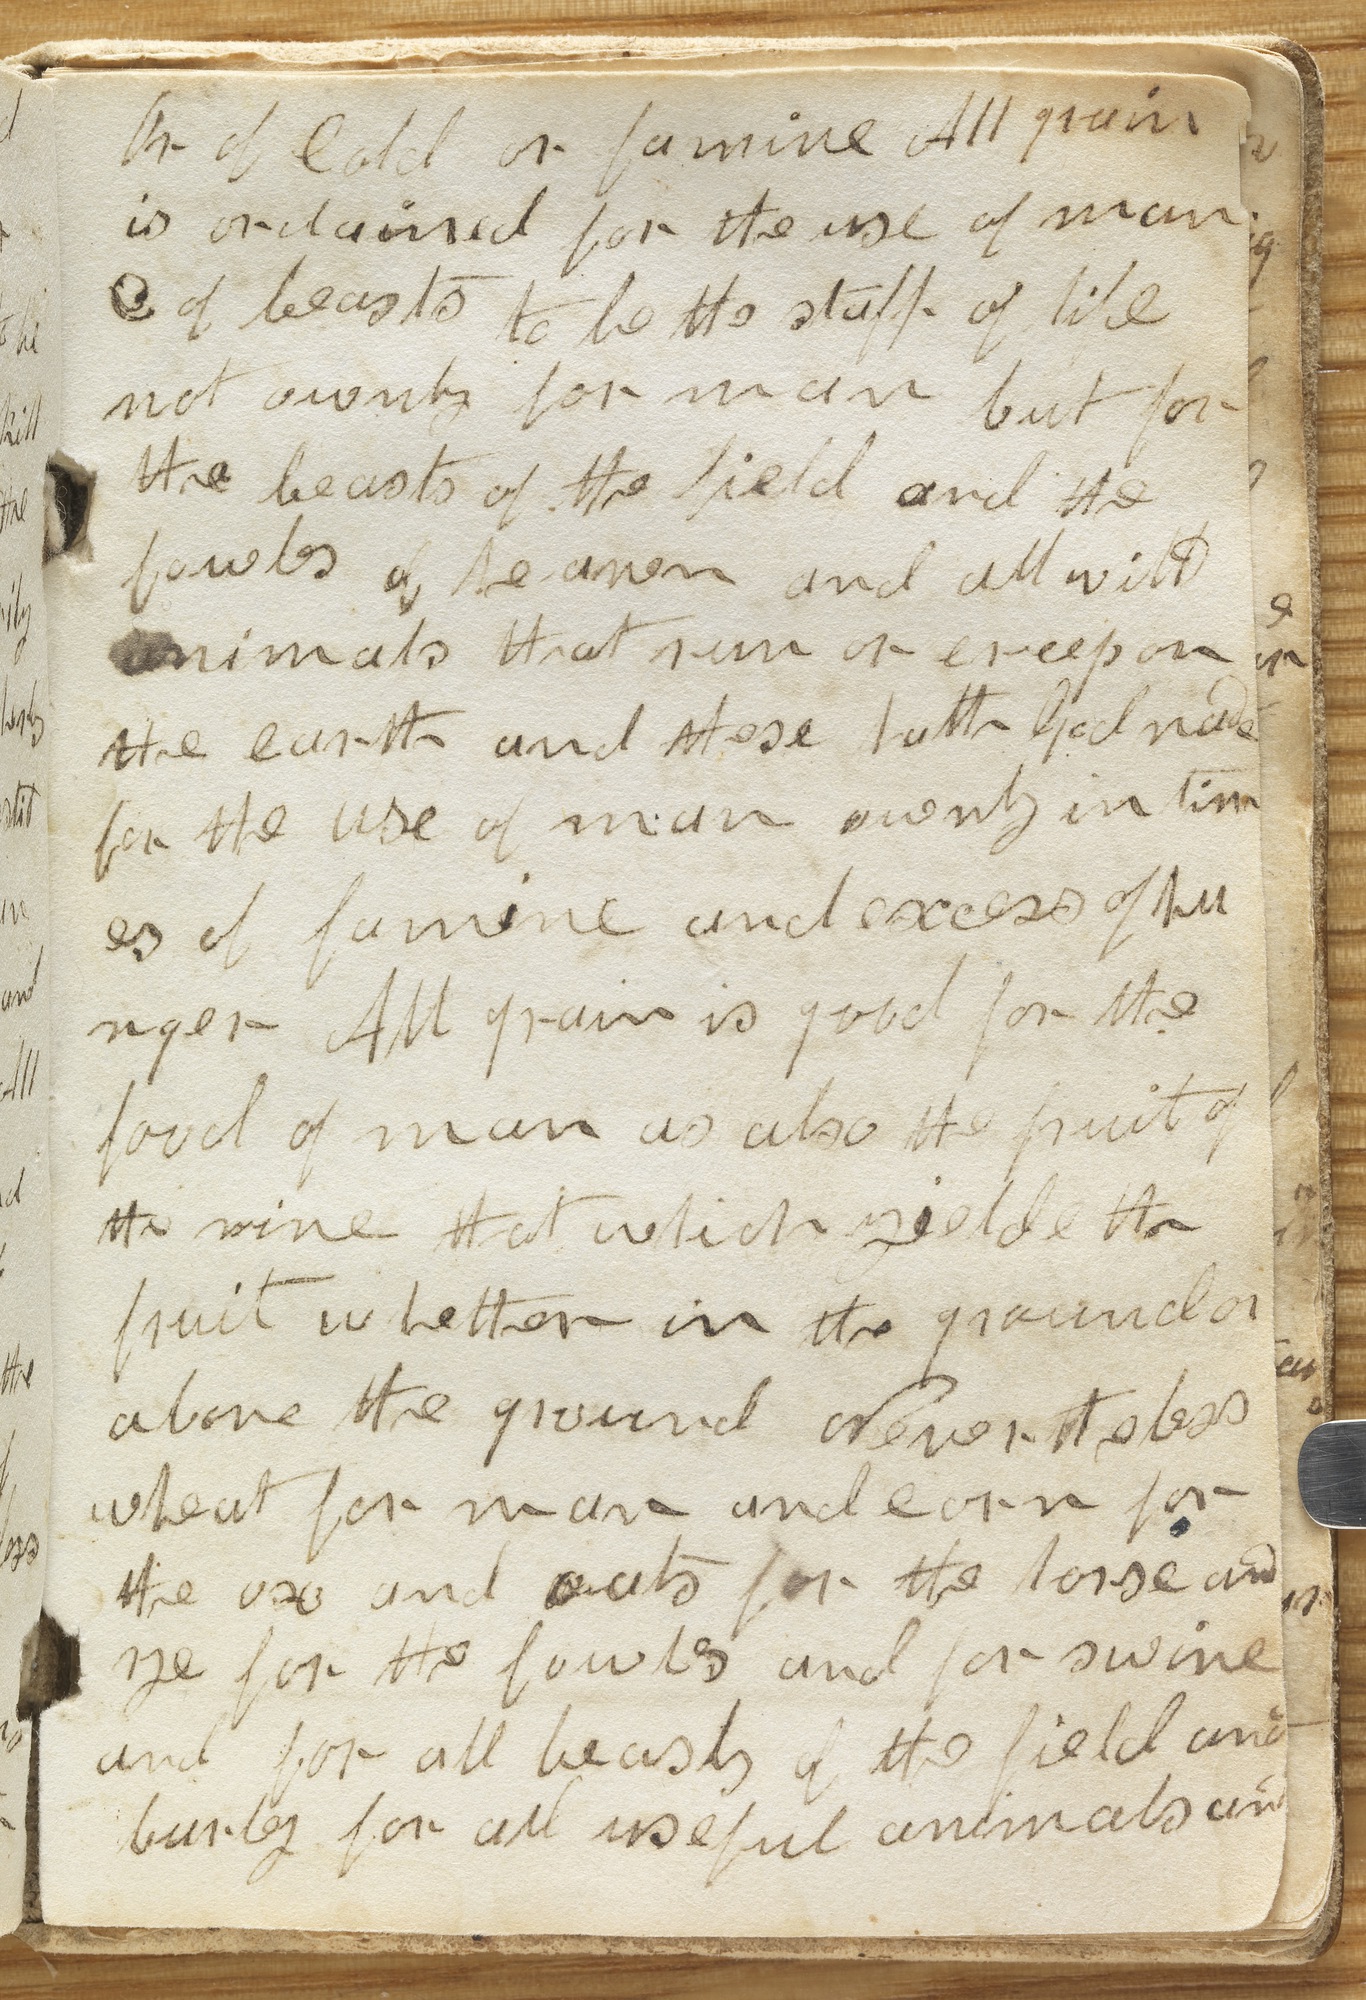 Or of Cold or famine All grain
is ordained for the use of man
& of beasts to be the staff of life
not owenly for man but for
the beasts of the field and the
fowels of heaven and all wild
animals that run or creep on
the earth and these hath God made
for the use of man owenly in tim
es of famine and excess of hu
nger All grain is good for the
food of man as also the fruit of
the vine that which yieldeth
fruit whether in the ground or
above the ground Nevertheless
wheat for man and corn for
the ox and oats for the horse and
rye for the fowls and for swine
and for all beasts of the field and
barley for all useful animals and